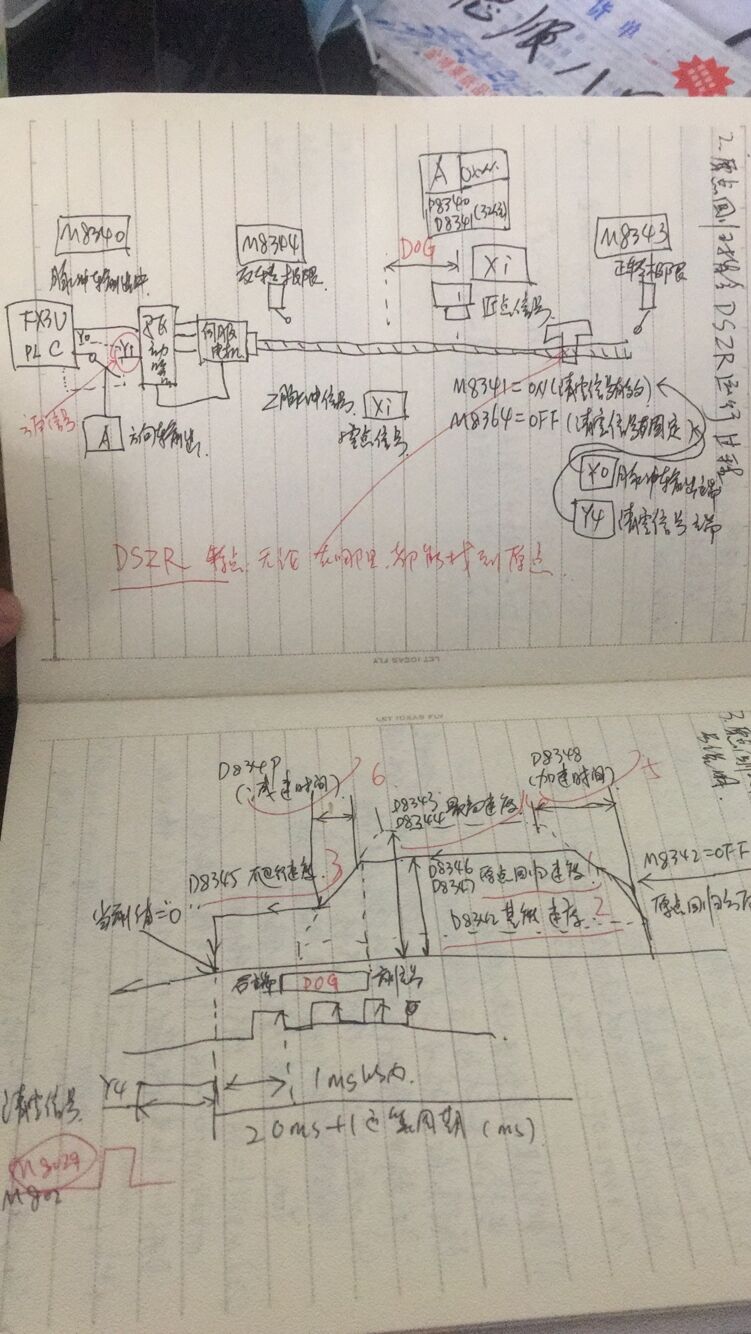 货单
2. 原点回归指令DSZR运行过程
A
D8340
D8341(32位)
M8340
脉冲输出中
M8344
反转极限
DOG
Xi
近点信号
M8343
正转极限
FX3U
PLC
Y0
Y1
伺服
电机
方向信号
A
方向输出
Z脉冲信号
Xi
零点信号
M8341=ON(清零信号有效)
M8364=OFF(清零信号固定)
Y0 脉冲输出端
Y4 清零信号端
DSZR 特点 无论在哪里,都能找到原点
LET IDEAS FLY
LET IDEAS FLY
(减速时间)
6
D8348
(加速时间)
5
D8343
D8344 最高速度
4
D8345 爬行速度
3
D8346
D8347 原点回归速度
1
D8342 基底速度
2
M8342=OFF
当前值=0
后端
DOG
前端
清零信号
Y4
1ms以内
20ms+1运算周期(ms)
M8029
M802